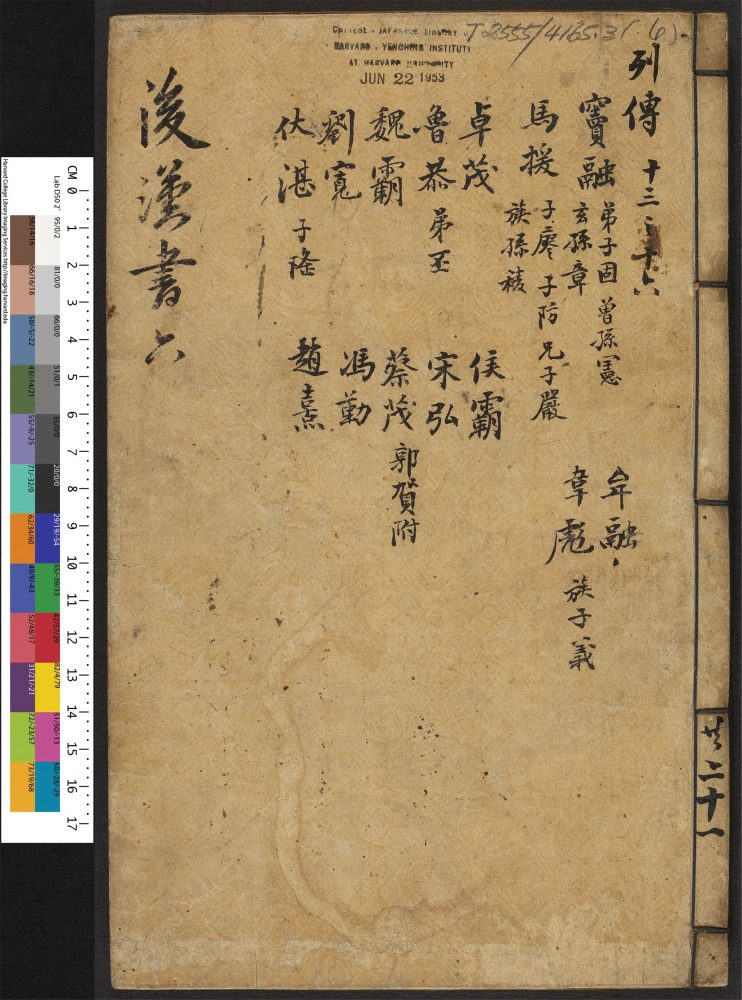 CHINESE - JAPANESE LIBRARY OF
HARVARD - YENCHING INSTITUTE
AT HARVARD UNIVERSITY
JUN 22 1953
T 2555/4165.3(.6)
列傳 十三之十六
竇融 弟子固 曾孫憲
玄孫章
馬援 子廖 子防 兄子嚴
族孫稜
卓茂
魯恭 弟丕
魏霸
劉寬
伏湛 子隆
侯霸
宋弘
蔡茂 郭賀附
馮勤
趙憙
牟融
韋彪 族子義
後漢書 六
共二十一
CM 0 1 2 3 4 5 6 7 8 9 10 11 12 13 14 15 16 17
Harvard College Library Imaging Services